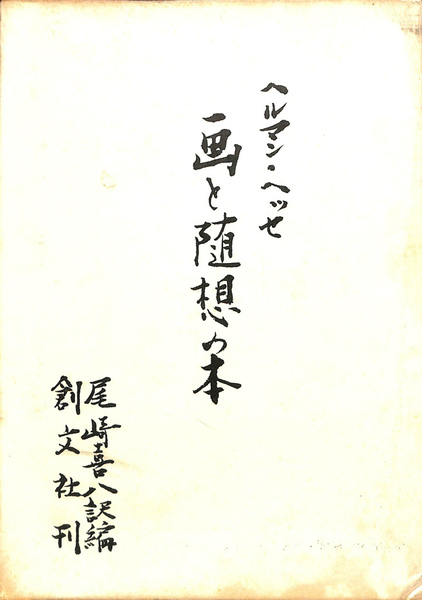 ヘルマン・ヘッセ
画と随想の本
尾崎喜八訳編
創文社刊